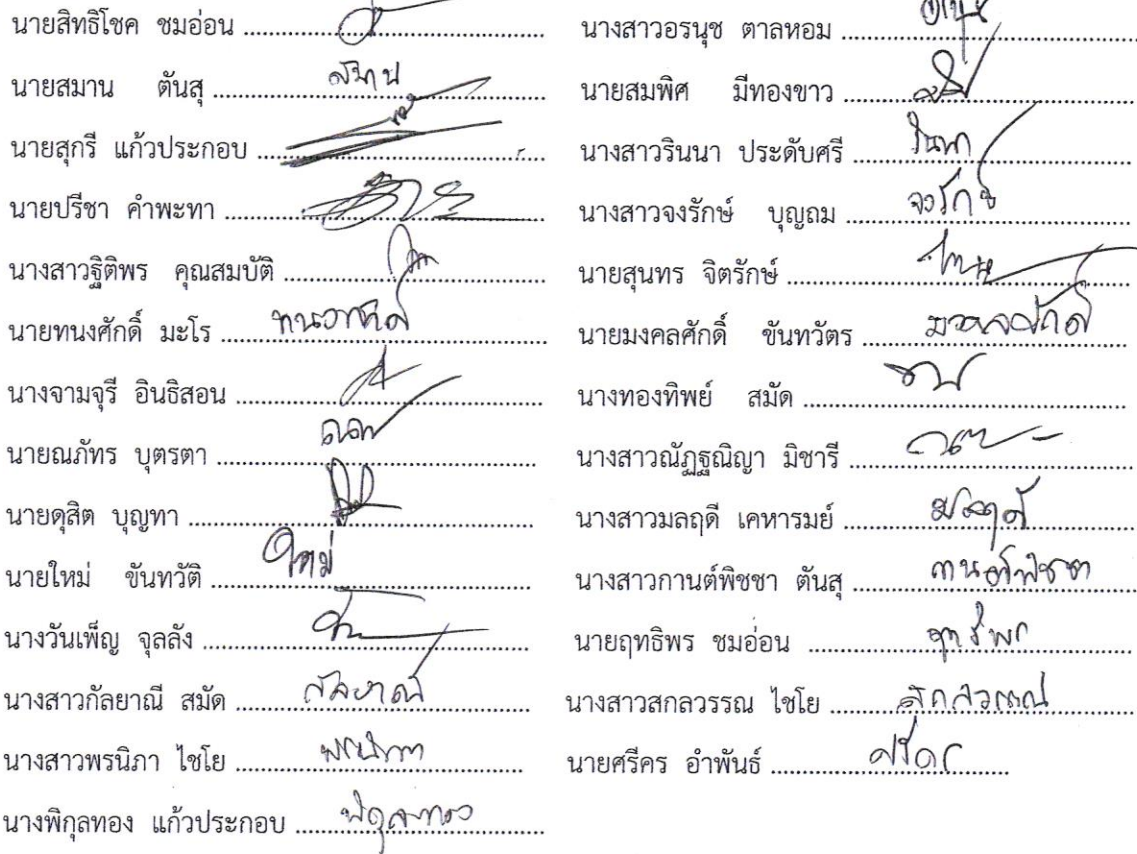 นายสิทธิโชค ชมอ่อน
นายสมาน ตันสุ สมาน
นายสุกรี แก้วประกอบ
นายปรีชา คำพะทา
นางสาวฐิติพร คุณสมบัติ
นายทนงศักดิ์ มะโร ทนงศักดิ์
นางจามจุรี อินธิสอน
นายณภัทร บุตรตา
นายดุสิต บุญทา
นายใหม่ ขันทวัติ ใหม่
นางวันเพ็ญ จุลลัง
นางสาวกัลยาณี สมัด กัลยาณี
นางสาวพรนิภา ไชโย พรนิภา
นางพิกุลทอง แก้วประกอบ พิกุลทอง
นางสาวอรนุช ตาลหอม
นายสมพิศ มีทองขาว
นางสาวรินนา ประดับศรี รินนา
นางสาวจงรักษ์ บุญถม จงรักษ์
นายสุนทร จิตรักษ์
นายมงคลศักดิ์ ขันทวัตร มงคลศักดิ์
นางทองทิพย์ สมัด
นางสาวณัฏฐณิญา มิชารี
นางสาวมลฤดี เคหารมย์ มลฤดี
นางสาวกานต์พิชชา ตันสุ กานต์พิชชา
นายฤทธิพร ชมอ่อน ฤทธิพร
นางสาวสกลวรรณ ไชโย สกลวรรณ
นายศรีคร อำพันธ์ ศรีคร